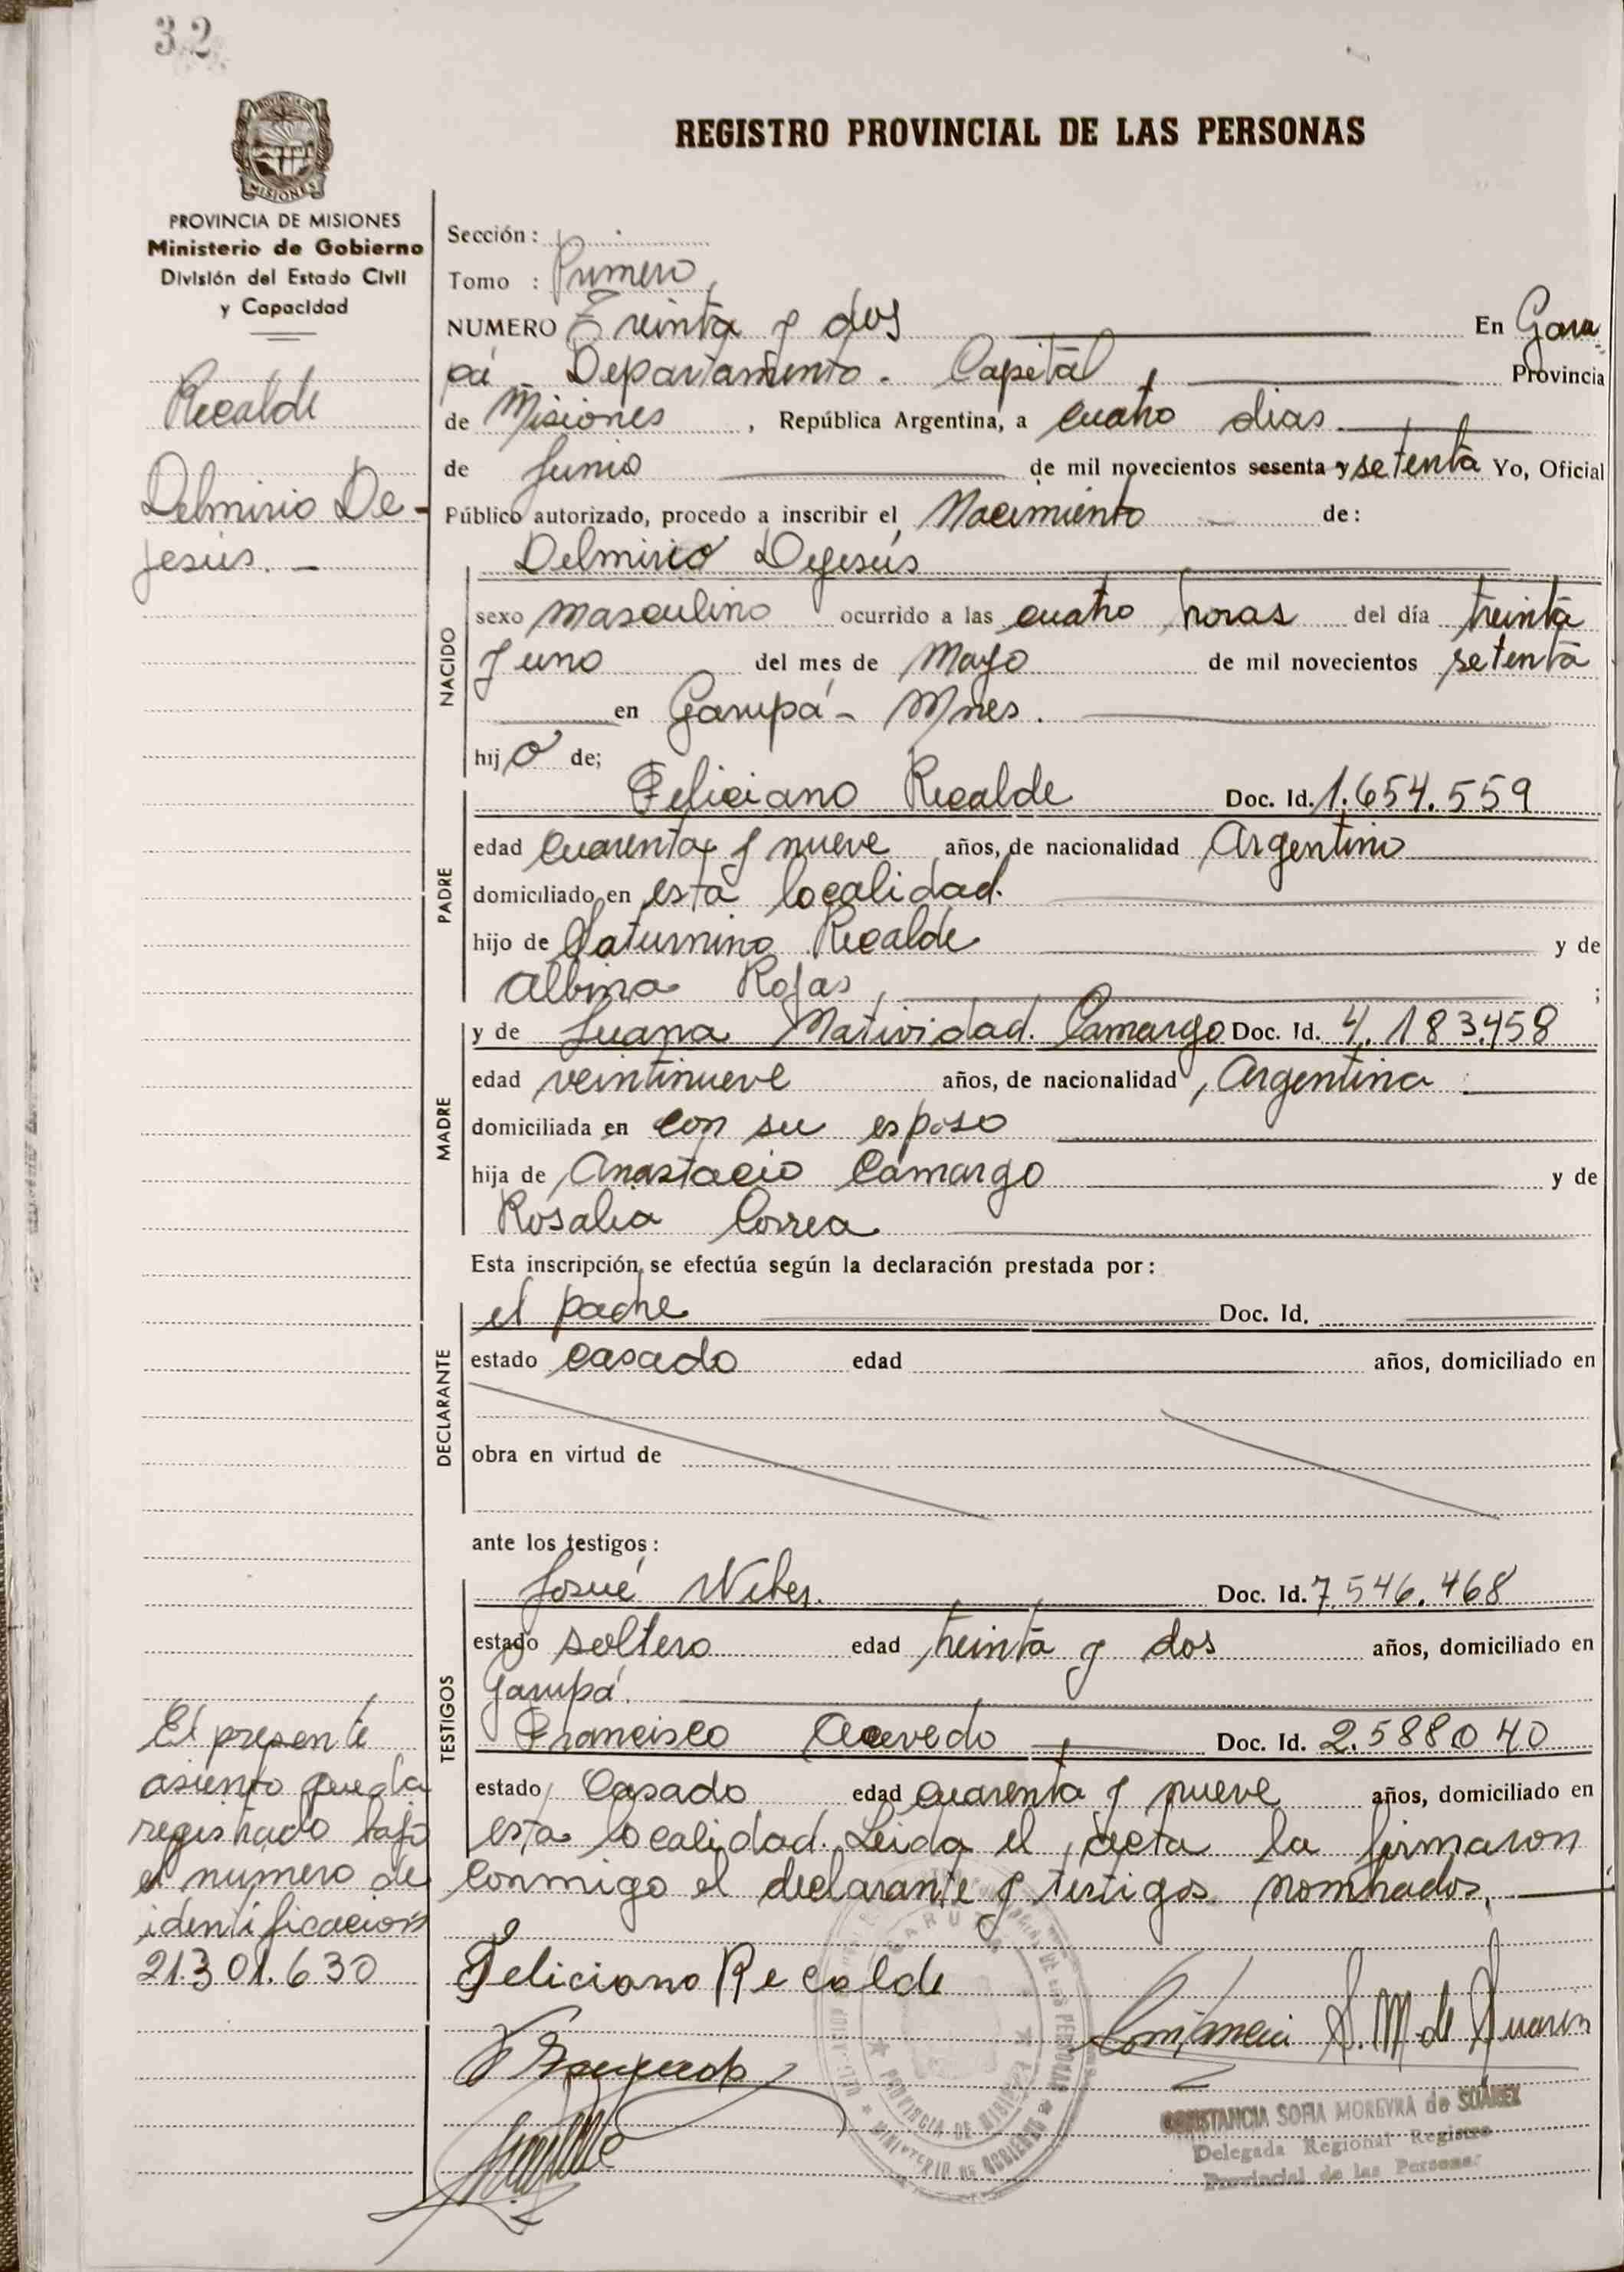 32
MISIONES
PROVINCIA DE MISIONES
Ministerio de Gobierno
División del Estado Civil
y Capacidad
Recalde
Delmirio De-
jesús. -
El presente
asiento queda
registrado bajo
el número de
identificación
21.301.630
REGISTRO PROVINCIAL DE LAS PERSONAS
Sección :
Tomo : Primero
NUMERO Treinta y dos En Garu
pá Departamento. Capital, Provincia
de Misiones, República Argentina, a cuatro dias
de Junio de mil novecientos sesenta y setenta Yo, Oficial
Público autorizado, procedo a inscribir el Nacimiento de:
Delmirio Dejesús
NACIDO
sexo masculino ocurrido a las cuatro horas del día treinta
y uno del mes de Mayo de mil novecientos setenta
en Garupá - Mnes.
hijo de;
PADRE
Feliciano Recalde Doc. Id. 1.654.559
edad cuarenta y nueve años, de nacionalidad Argentino
domiciliado en esta localidad.
hijo de Saturnino Recalde y de
Albina Rojas ;
MADRE
y de Juana Natividad. Camargo Doc. Id. 4.183.458
edad veintinueve años, de nacionalidad Argentina
domiciliada en con su esposo
hija de Anastacio Camargo y de
Rosalia Correa
Esta inscripción se efectúa según la declaración prestada por :
DECLARANTE
el padre Doc. Id.
estado casado edad años, domiciliado en
obra en virtud de
ante los testigos :
TESTIGOS
Josué Weber. Doc. Id. 7.546.468
estado soltero edad treinta y dos años, domiciliado en
Garupá.
Francisco Acevedo Doc. Id. 2.588040
estado Casado edad cuarenta y nueve años, domiciliado en
esta localidad. Leida el acta la firmaron
conmigo el declarante y testigos nombrados.
Feliciano Recalde
Constancia S. M. de Suarez
CONSTANCIA SOFIA MOREYRA de SUAREZ
Delegada Regional Registro
Provincial de las Personas
GARUPA
PROVINCIA DE MISIONES
MINISTERIO DE GOBIERNO